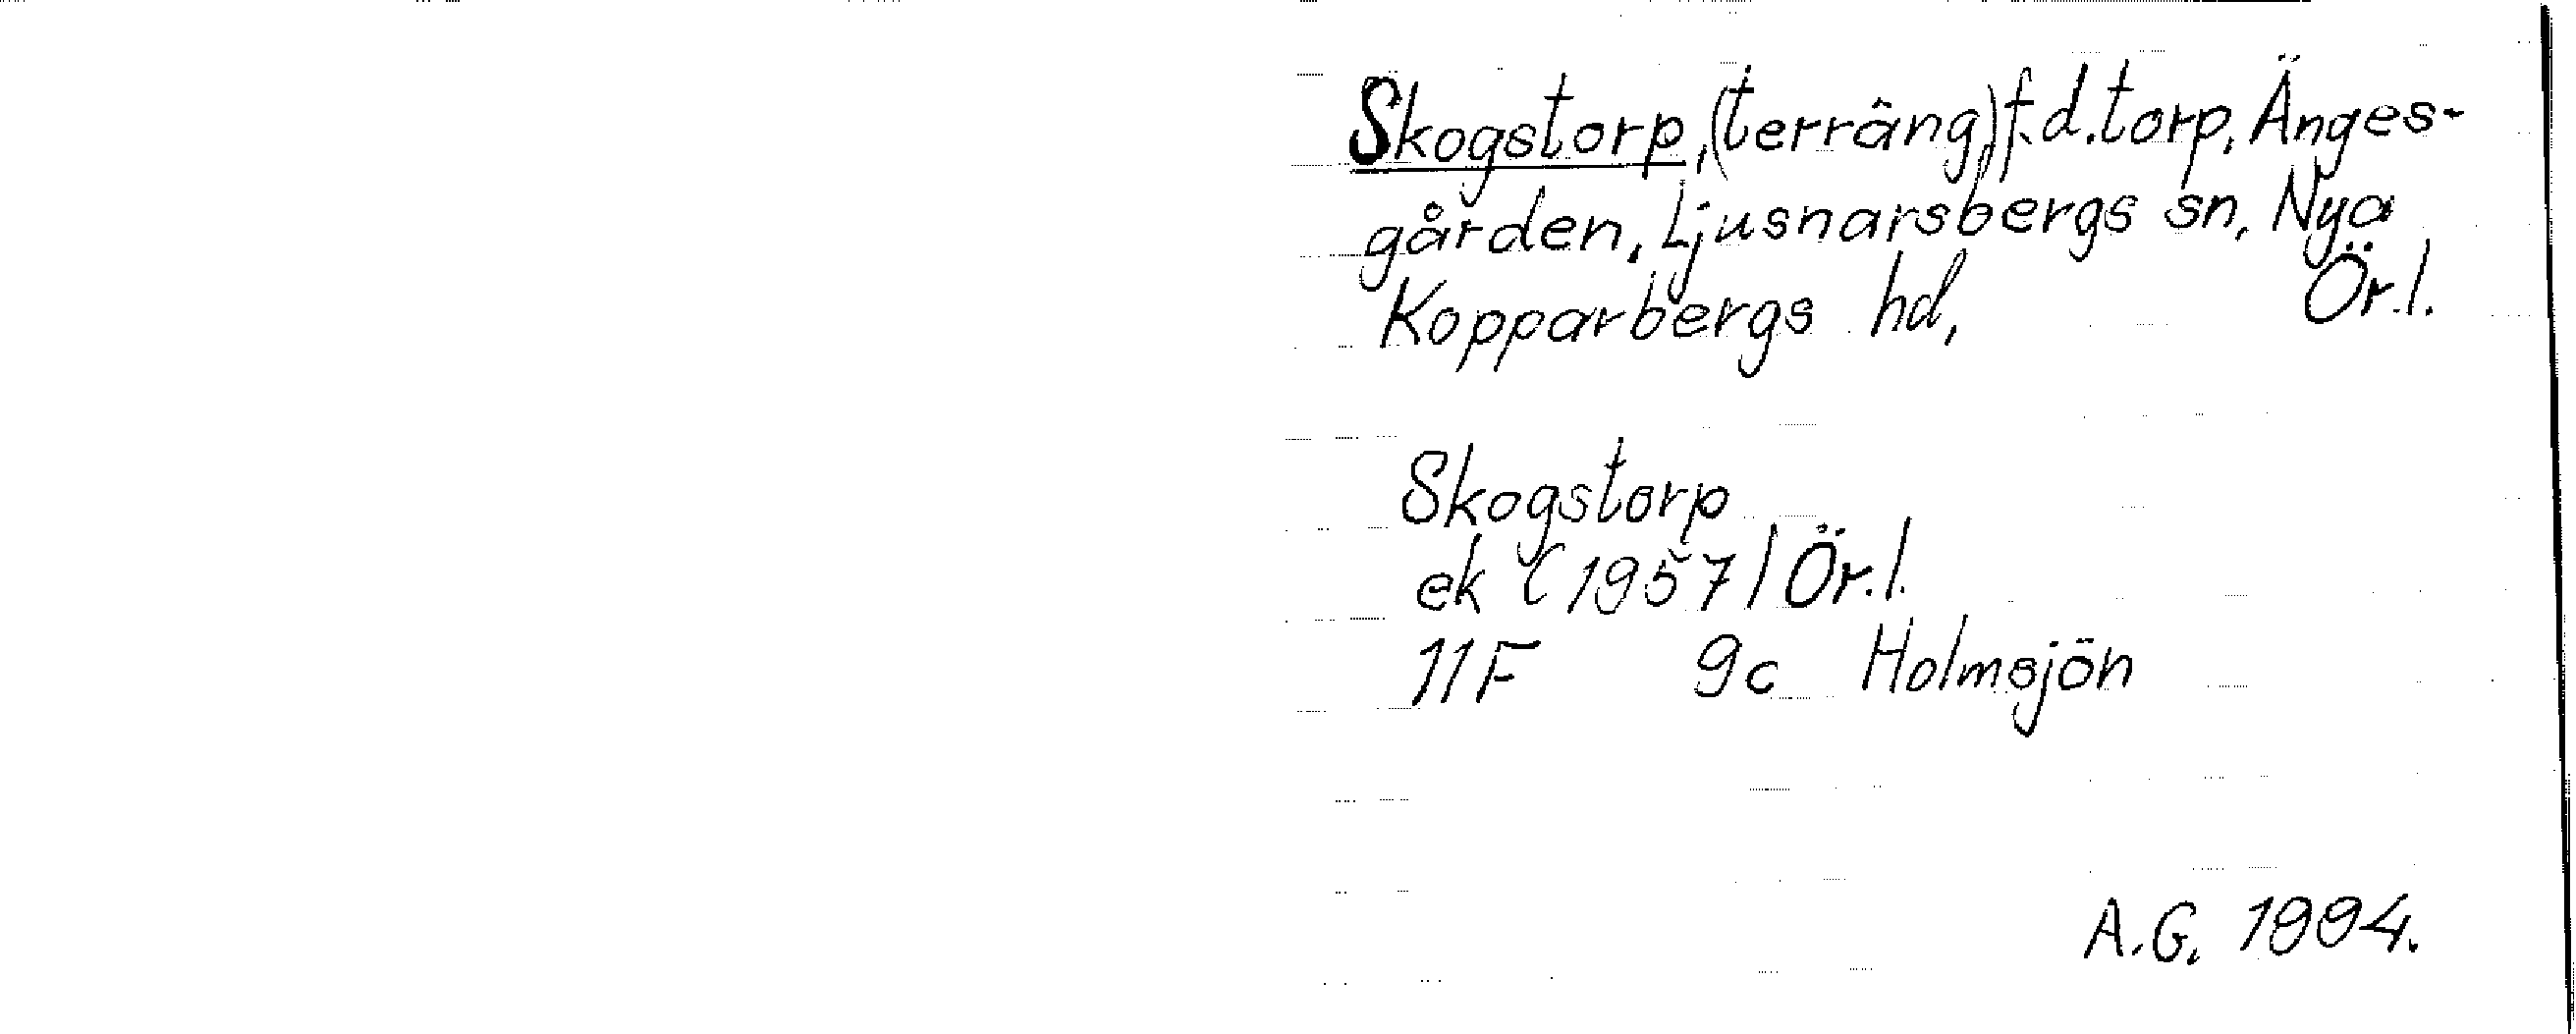 Skogstorp, (terräng), f.d. torp, Änges-
gården, Ljusnarsbergs sn, Nya
Kopparbergs hd, Ör.l.
Skogstorp
ek (1957) Ör.l.
11F 9c Holmsjön
A.G. 1994.